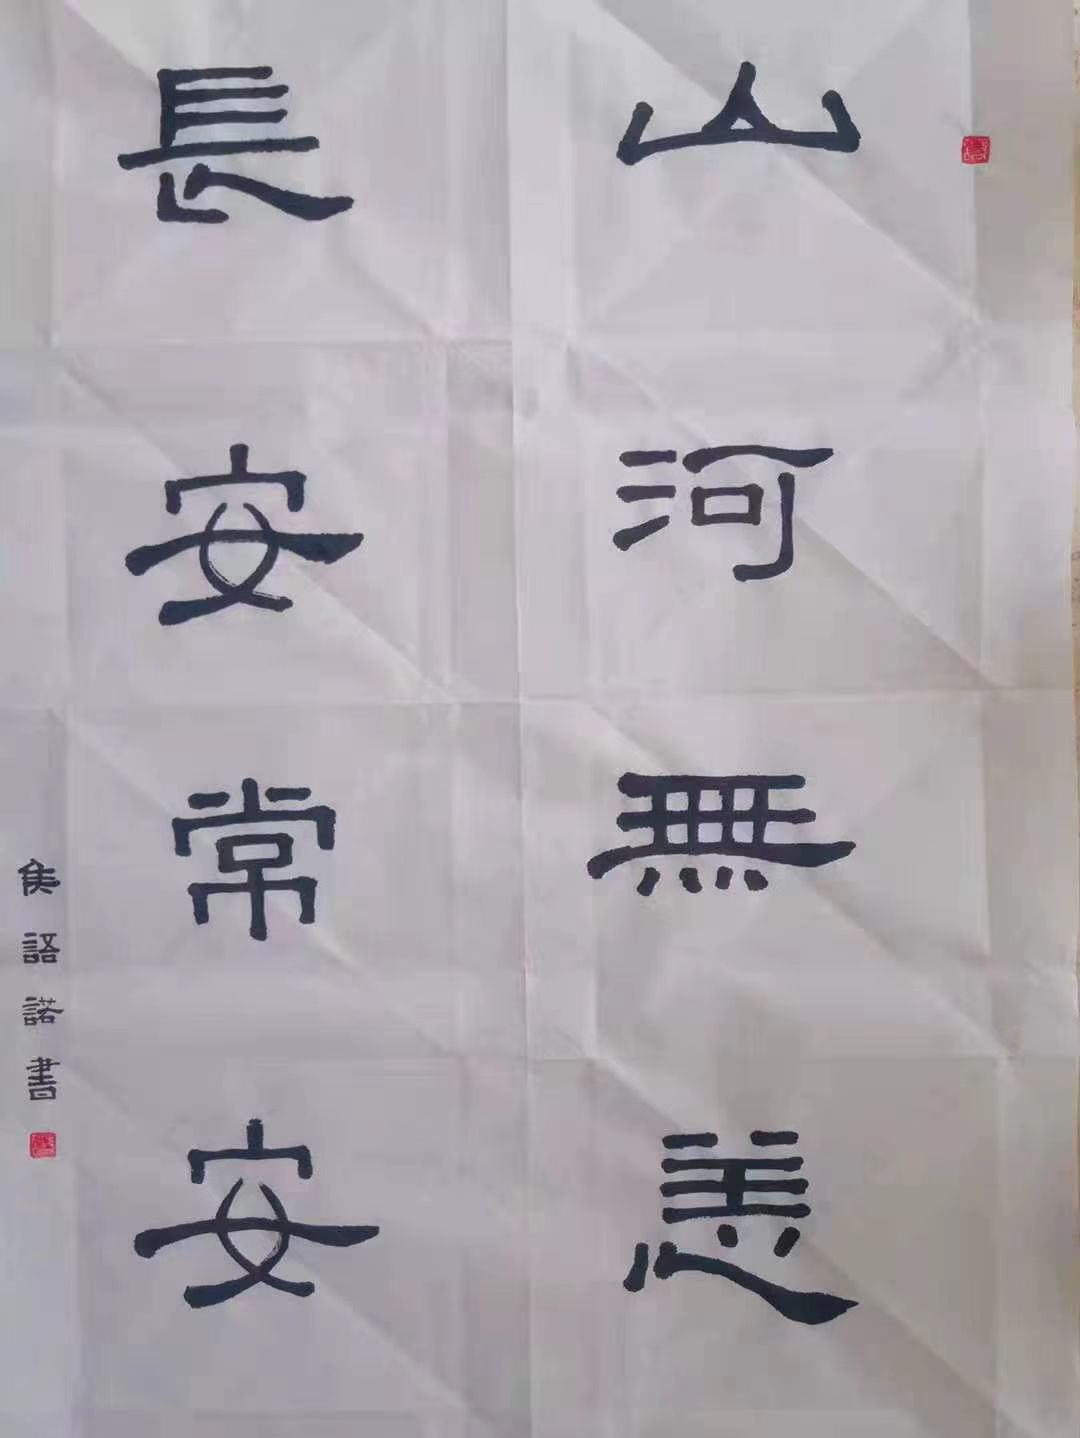 山河無恙
長安常安
侯語諾書